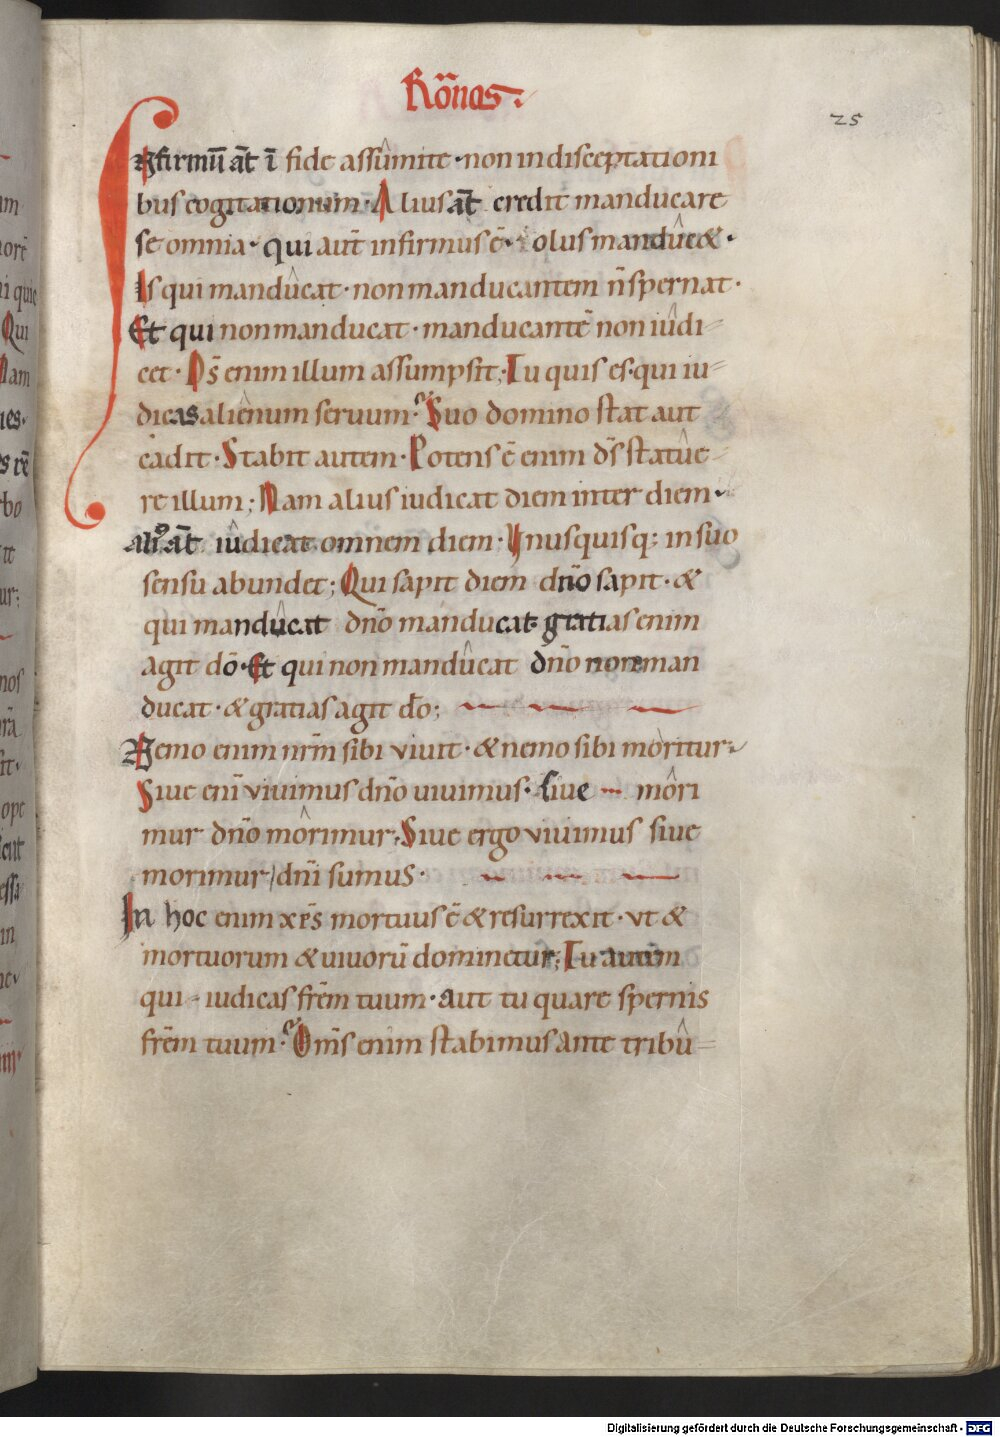 Rōnas.
25
Infirmū at̄ ī fide assûmite · non in disceptationi
bus cogitationum · Alius at̄ credit manducare
se omnia · qui aut̄ infirmus ē · olus mandûc& ·
Is qui mandûcat · non manducantem n̄ spernat ·
Et qui non manducat · manducantē non iûdi-
cet · Ds̄ enim illum assumpsit; Tu quis es · qui iu-
dicas aliênum seruum · Suo domino stat aut
cadit · Stabit autem · Potens ē enim ds̄ statûe-
re illum; Nam alius iudicat diem inter diem ·
Aliꝰ at̄ iûdicat omnem diem · Vnusquisq; in suo
sensu abundet; Qui sapit diem dn̄o sapit · &
qui mandûcat dn̄o manducat · gratias enim
agit dō · Et qui non mandûcat dn̄o non man
ducat · & gratias agit do̅;
Nemo enim nr̄m sibi viuit · & nemo sibi moritur ·
Siue eni̅ viuimus dn̄o uiuimus · siue môri
mur dn̄o môrimur · Siue ergo viuimus siue
morimur / dn̄i sumus ·
In hoc enim xp̄s mortuus ē & resurrexit · vt &
mortuorum & uiuorū dominetur; Tu autem
qui iudicas frēm tuum · aut tu quare spernis
frēm tuum · Om̄s enim stabimus ante tribû-
Digitalisierung gefördert durch die Deutsche Forschungsgemeinschaft - DFG